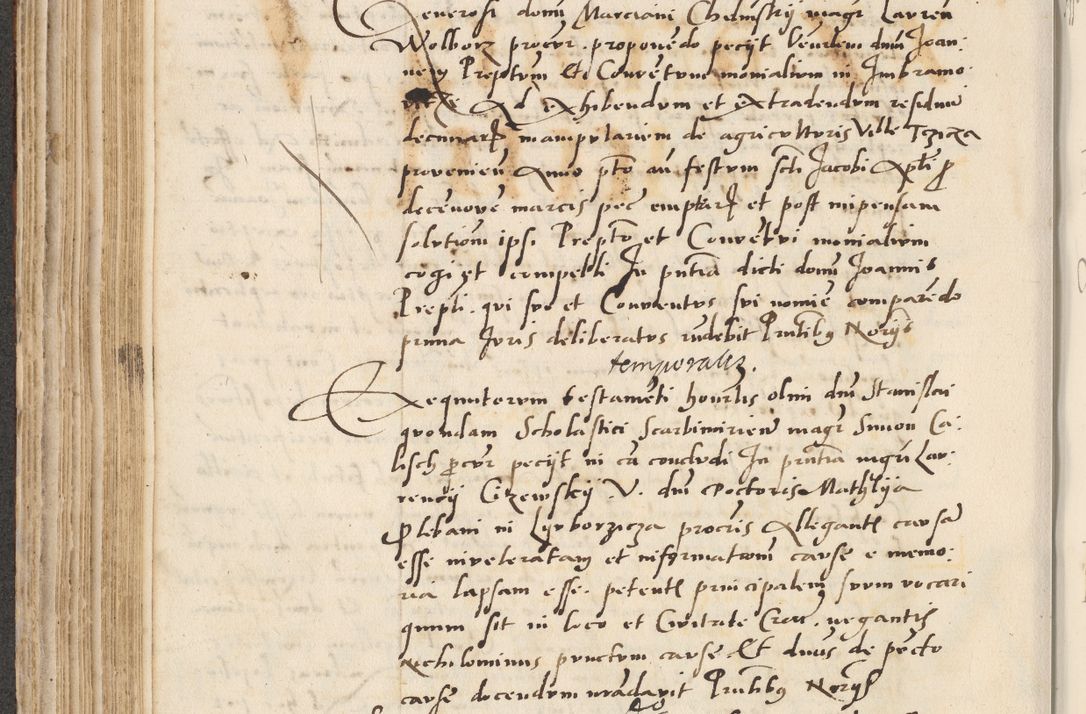 Generosi domi Marciani Chelmskij magr Lauren
Wolborz procur. proponendo pecijt Venerlem dnm Ioan:
nem Prepotum Et Conventum monialium in Imbramo
vicze Ad exhibendum et extradendum residuu
decimarum manipularium de agriculturis Ville Tczicza
provenien Anno pto an festum scti Jacobi Apli pro
decenove marcis pec emptarum et post impensam
solutiom ipsi Prepto et Conventui monialium
cogi et compelli In pntia dicti domi Joannis
Prepti. qui suo et Conventus sui nomie comparendo
prima Juris deliberatus rndebit Pntibus Norijs
temporalis.
Exequutorum testamenti honrlis olim dni Stanislai
quondam Scholastici Scarbimirien magr Simon Ca:
lisch procur pecijt in ca concludi In pntia mgri Lau:
rencij Cizewskij V. dni Doctoris Mathija
Plebani in Lyuborzicza procris Allegantis causa
esse inveleratam et informatiom cause e memo:
ria lapsam esse. petentis principalem suum vocari
quum sit in loco et Civitate Crac. negantis
nichilominus punctum cause Et dnus de puncto
cause docendum mandavit Pntibus Norijs